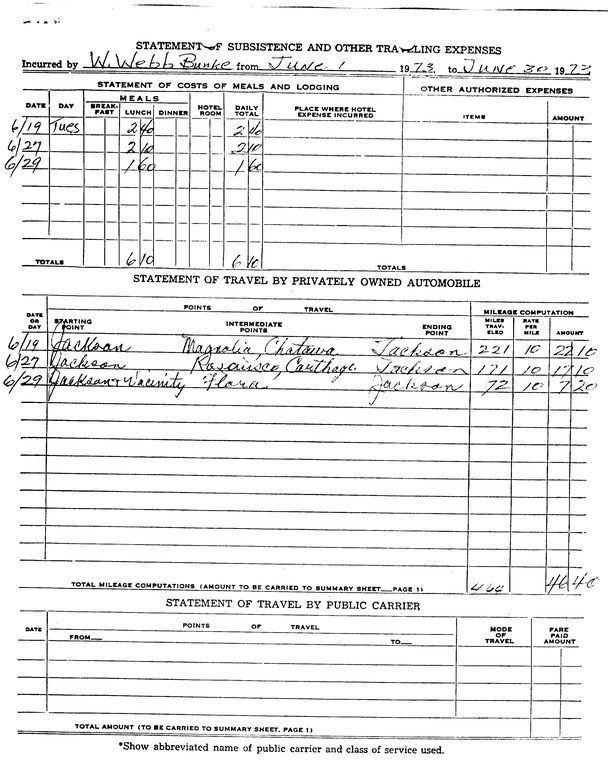 STATEMENT OF SUBSISTENCE AND OTHER TRAVELING EXPENSES
Incurred by W. Webb Burke from June 1 1973, to June 30 1973
STATEMENT OF COSTS OF MEALS AND LODGING OTHER AUTHORIZED EXPENSES
DATE DAY MEALS BREAK-FAST LUNCH DINNER HOTEL ROOM DAILY TOTAL PLACE WHERE HOTEL EXPENSE INCURRED ITEMS AMOUNT
6/19 Tues 2 40 2 40
6/27 2 10 2 10
6/29 1 60 1 60
TOTALS 6 10 6 10 TOTALS
STATEMENT OF TRAVEL BY PRIVATELY OWNED AUTOMOBILE
DATE OR DAY POINTS OF TRAVEL MILEAGE COMPUTATION
STARTING POINT INTERMEDIATE POINTS ENDING POINT MILES TRAV-ELED RATE PER MILE AMOUNT
6/19 Jackson Magnolia, Chatawa Jackson 221 10 22 10
6/27 Jackson Carthage Jackson 171 10 17 10
6/29 Jackson + Vacinity Flora Jackson 72 10 7 20
TOTAL MILEAGE COMPUTATIONS (AMOUNT TO BE CARRIED TO SUMMARY SHEET PAGE 1) 464 46 40
STATEMENT OF TRAVEL BY PUBLIC CARRIER
DATE POINTS OF TRAVEL MODE OF TRAVEL FARE PAID AMOUNT
FROM TO
TOTAL AMOUNT (TO BE CARRIED TO SUMMARY SHEET, PAGE 1)
*Show abbreviated name of public carrier and class of service used.